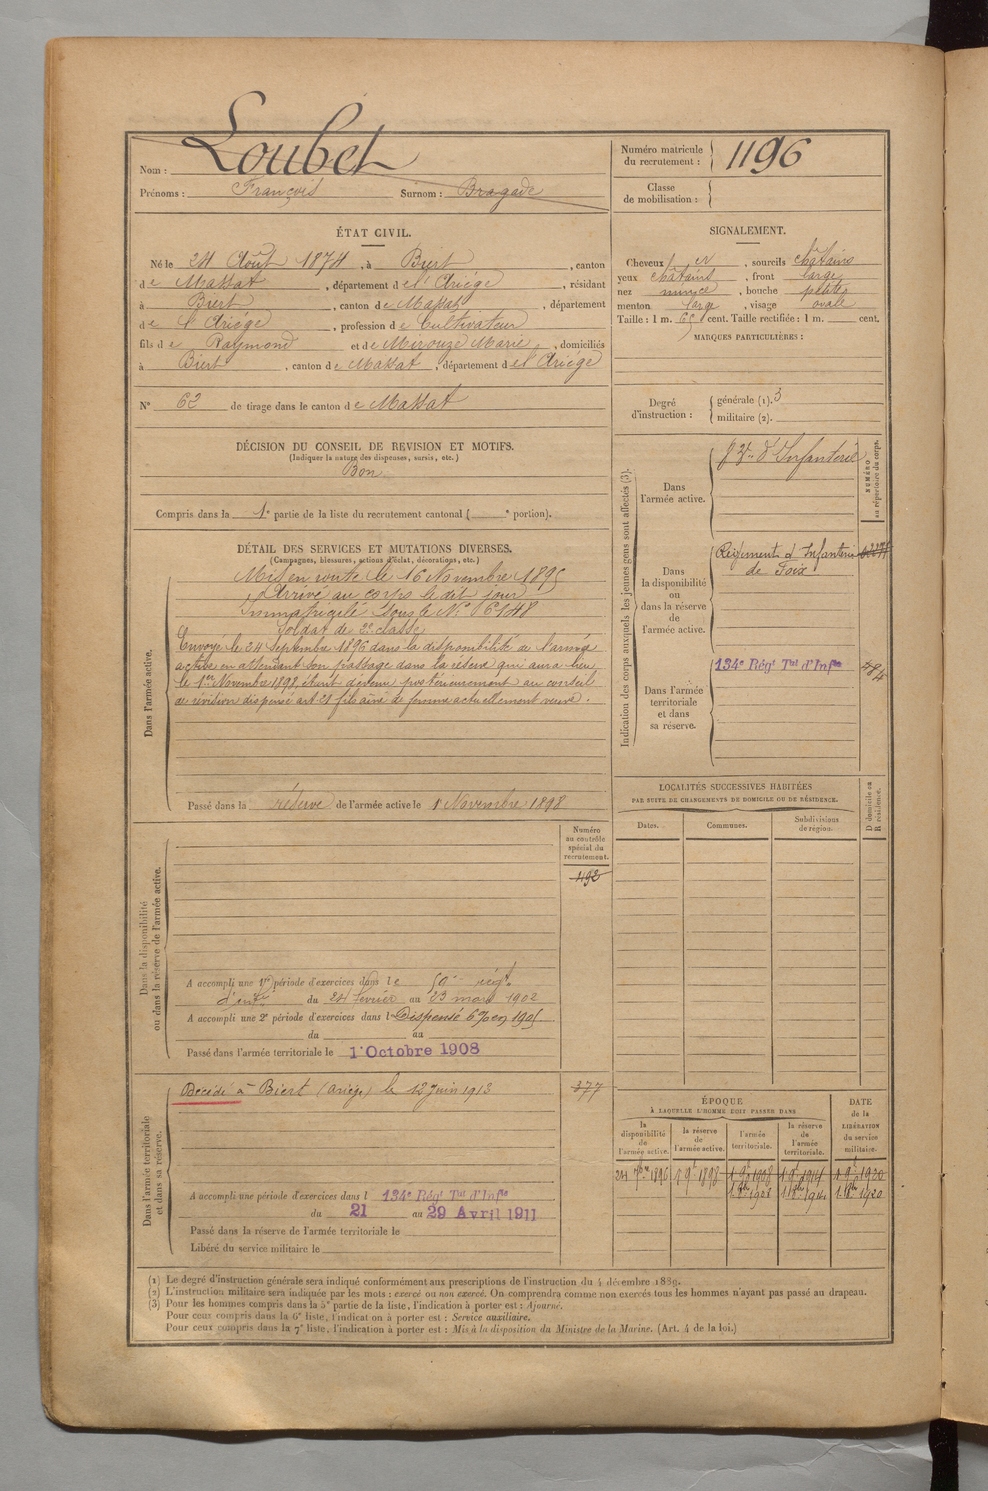 Nom : Loubet
Prénoms : François Surnom : Bragade
Numéro matricule
du recrutement : 1196
Classe
de mobilisation :
ÉTAT CIVIL.
Né le 24 Août 1874, à Biert, canton
de Massat, département de l'Ariège, résidant
à Biert, canton de Massat, département
de l'Ariège, profession de Cultivateur
fils de Raymond et de Mirouze Marie, domiciliés
à Biert, canton de Massat, département de l'Ariège
N° 62 de tirage dans le canton de Massat
SIGNALEMENT.
Cheveux et, sourcils châtains
yeux châtains, front large
nez mince, bouche petite
menton large, visage ovale
Taille : 1 m. 65 cent. Taille rectifiée : 1 m. cent.
MARQUES PARTICULIÈRES :
Degré
d'instruction :
générale (1). 3
militaire (2).
DÉCISION DU CONSEIL DE REVISION ET MOTIFS.
(Indiquer la nature des dispenses, sursis, etc.)
Bon
Compris dans la 1e partie de la liste du recrutement cantonal ( e portion).
DÉTAIL DES SERVICES ET MUTATIONS DIVERSES.
(Campagnes, blessures, actions d'éclat, décorations, etc.)
Dans l'armée active.
Mis en route le 16 Novembre 1895
Arrivé au corps le dit jour
Immatriculé sous le N° 6148
Soldat de 2e classe
Envoyé le 24 Septembre 1896 dans la disponibilité de l'armée
active en attendant son passage dans la réserve qui aura lieu
le 1er Novembre 1898 étant devenu postérieurement au conseil
de révision dispensé art. 21 fils aîné de femme actuellement veuve.
Passé dans la réserve de l'armée active le 1 Novembre 1898
Indication des corps auxquels les jeunes gens sont affectés (3).
NUMÉRO
au répertoire du corps.
Dans
l'armée active.
d'Infanterie
Dans
la disponibilité
ou
dans la réserve
de
l'armée active.
Régiment d'Infanterie
de Foix
Dans l'armée
territoriale
et dans
sa réserve.
134e Régt Tal d'Infie
484
LOCALITÉS SUCCESSIVES HABITÉES
PAR SUITE DE CHANGEMENTS DE DOMICILE OU DE RÉSIDENCE.
Dates. Communes. Subdivisions
de région.
D domicile ou
R résidence.
Numéro
au contrôle
spécial du
recrutement.
492
Dans la disponibilité
ou dans la réserve de l'armée active.
A accompli une 1re période d'exercices dans le 59e régt
d'infie du 24 février au 23 mars 1902
A accompli une 2e période d'exercices dans l Dispensé 6% en 1905
du au
Passé dans l'armée territoriale le 1er Octobre 1908
Dans l'armée territoriale
et dans sa réserve.
Décédé à Biert (Ariège) le 12 Juin 1913
377
A accompli une période d'exercices dans l 134e Régt Tal d'Infie
du 21 au 29 Avril 1911
Passé dans la réserve de l'armée territoriale le
Libéré du service militaire le
ÉPOQUE
À LAQUELLE L'HOMME DOIT PASSER DANS
DATE
de la
LIBÉRATION
du service
militaire.
la
disponibilité
de l'armée
active.
la réserve
de
l'armée active.
l'armée
territoriale.
la réserve
de
l'armée
territoriale.
24 7bre 1896 1 9e 1898 1 9e 1908 1 9e 1914 1 9e 1920
(1) Le degré d'instruction générale sera indiqué conformément aux prescriptions de l'instruction du 4 décembre 1889.
(2) L'instruction militaire sera indiquée par les mots : exercé ou non exercé. On comprendra comme non exercés tous les hommes n'ayant pas passé au drapeau.
(3) Pour les hommes compris dans la 5e partie de la liste, l'indication à porter est : Ajourné.
Pour ceux compris dans la 6e liste, l'indication à porter est : Service auxiliaire.
Pour ceux compris dans la 7e liste, l'indication à porter est : Mis à la disposition du Ministre de la Marine. (Art. 4 de la loi.)